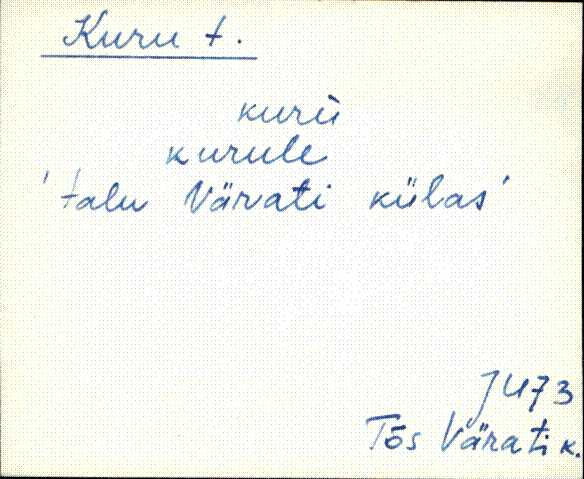 Kuru t.
kurù
kurule
'talu Värati külas'
JU73
Tõs Värati k.